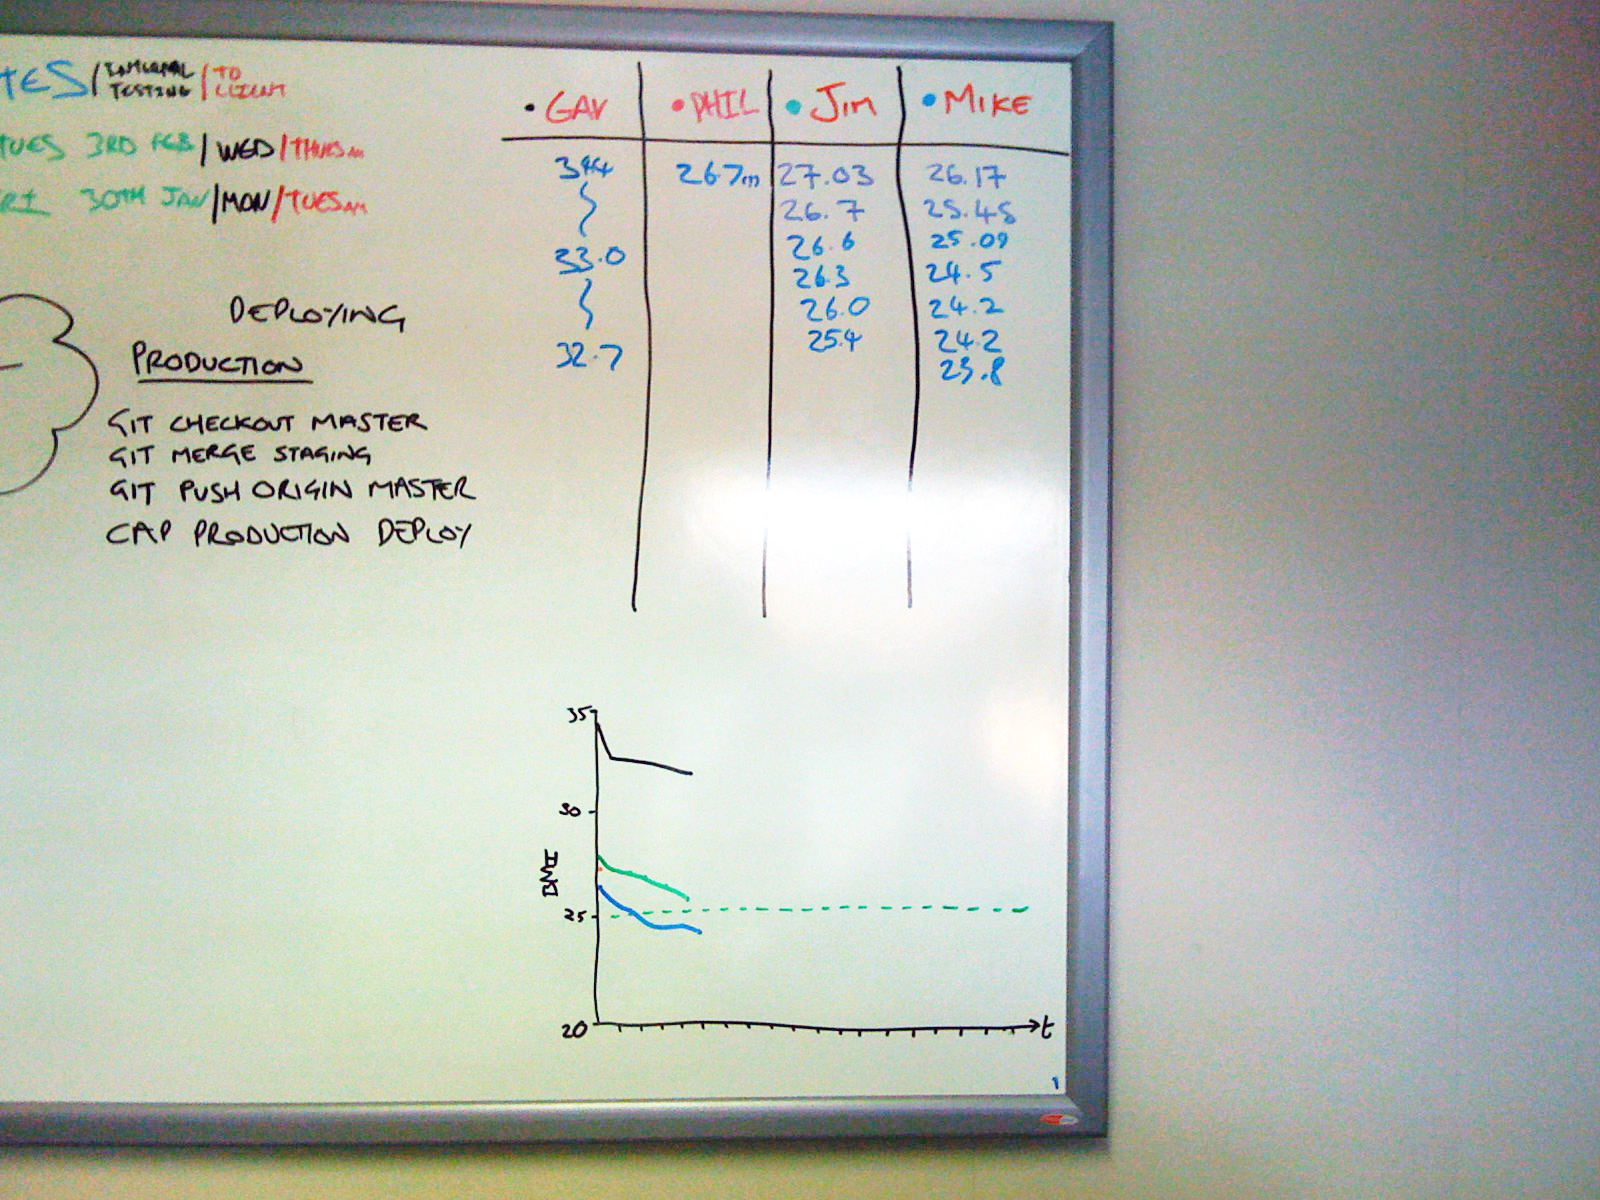 TES/INTERNAL TESTING/TO CLIENT
TUES 3RD FEB/WED/THURS AM
RI 30TH JAN/MON/TUES AM
DEPLOYING
PRODUCTION
GIT CHECKOUT MASTER
GIT MERGE STAGING
GIT PUSH ORIGIN MASTER
CAP PRODUCTION DEPLOY
• GAV • PHIL • JIM • MIKE
34.4 26.7 27.03 26.17
26.7 25.45
33.0 26.6 25.09
26.3 24.5
26.0 24.2
32.7 25.4 24.2
23.8
35
30
BMI
25
20
t